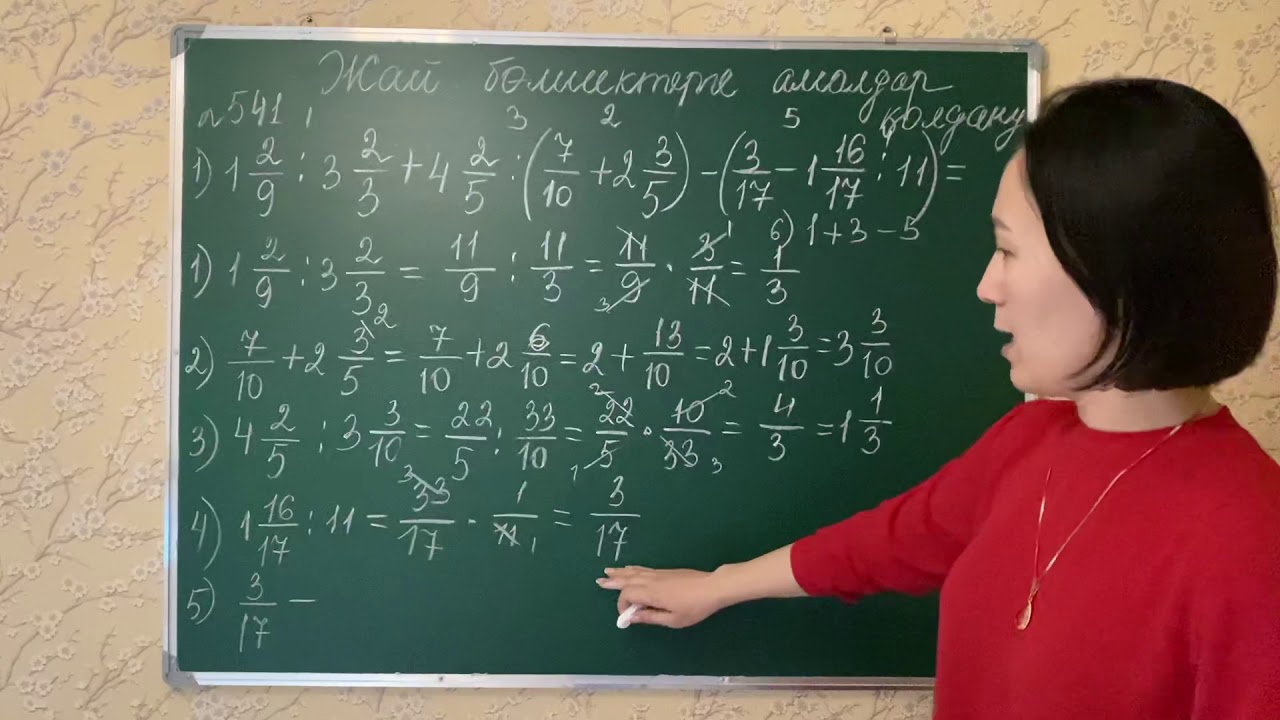 Жай бөлшектерге амалдар
№541 1 3 2 5 4 қолдану
1) 1 2/9 : 3 2/3 + 4 2/5 : (7/10 + 2 3/5) - (3/17 - 1 16/17 : 11) =
6) 1+3-5
1) 1 2/9 : 3 2/3 = 11/9 : 11/3 = 11/9 · 3/11 = 1/3
2) 7/10 + 2 3/5 = 7/10 + 2 6/10 = 2 + 13/10 = 2 + 1 3/10 = 3 3/10
3) 4 2/5 : 3 3/10 = 22/5 : 33/10 = 22/5 · 10/33 = 4/3 = 1 1/3
4) 1 16/17 : 11 = 33/17 · 1/11 = 3/17
5) 3/17 -